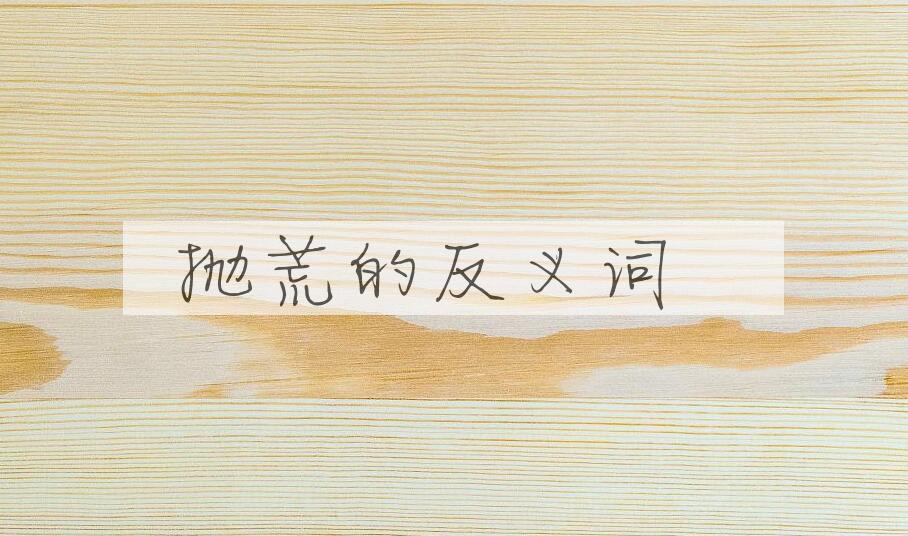 抛荒的反义词